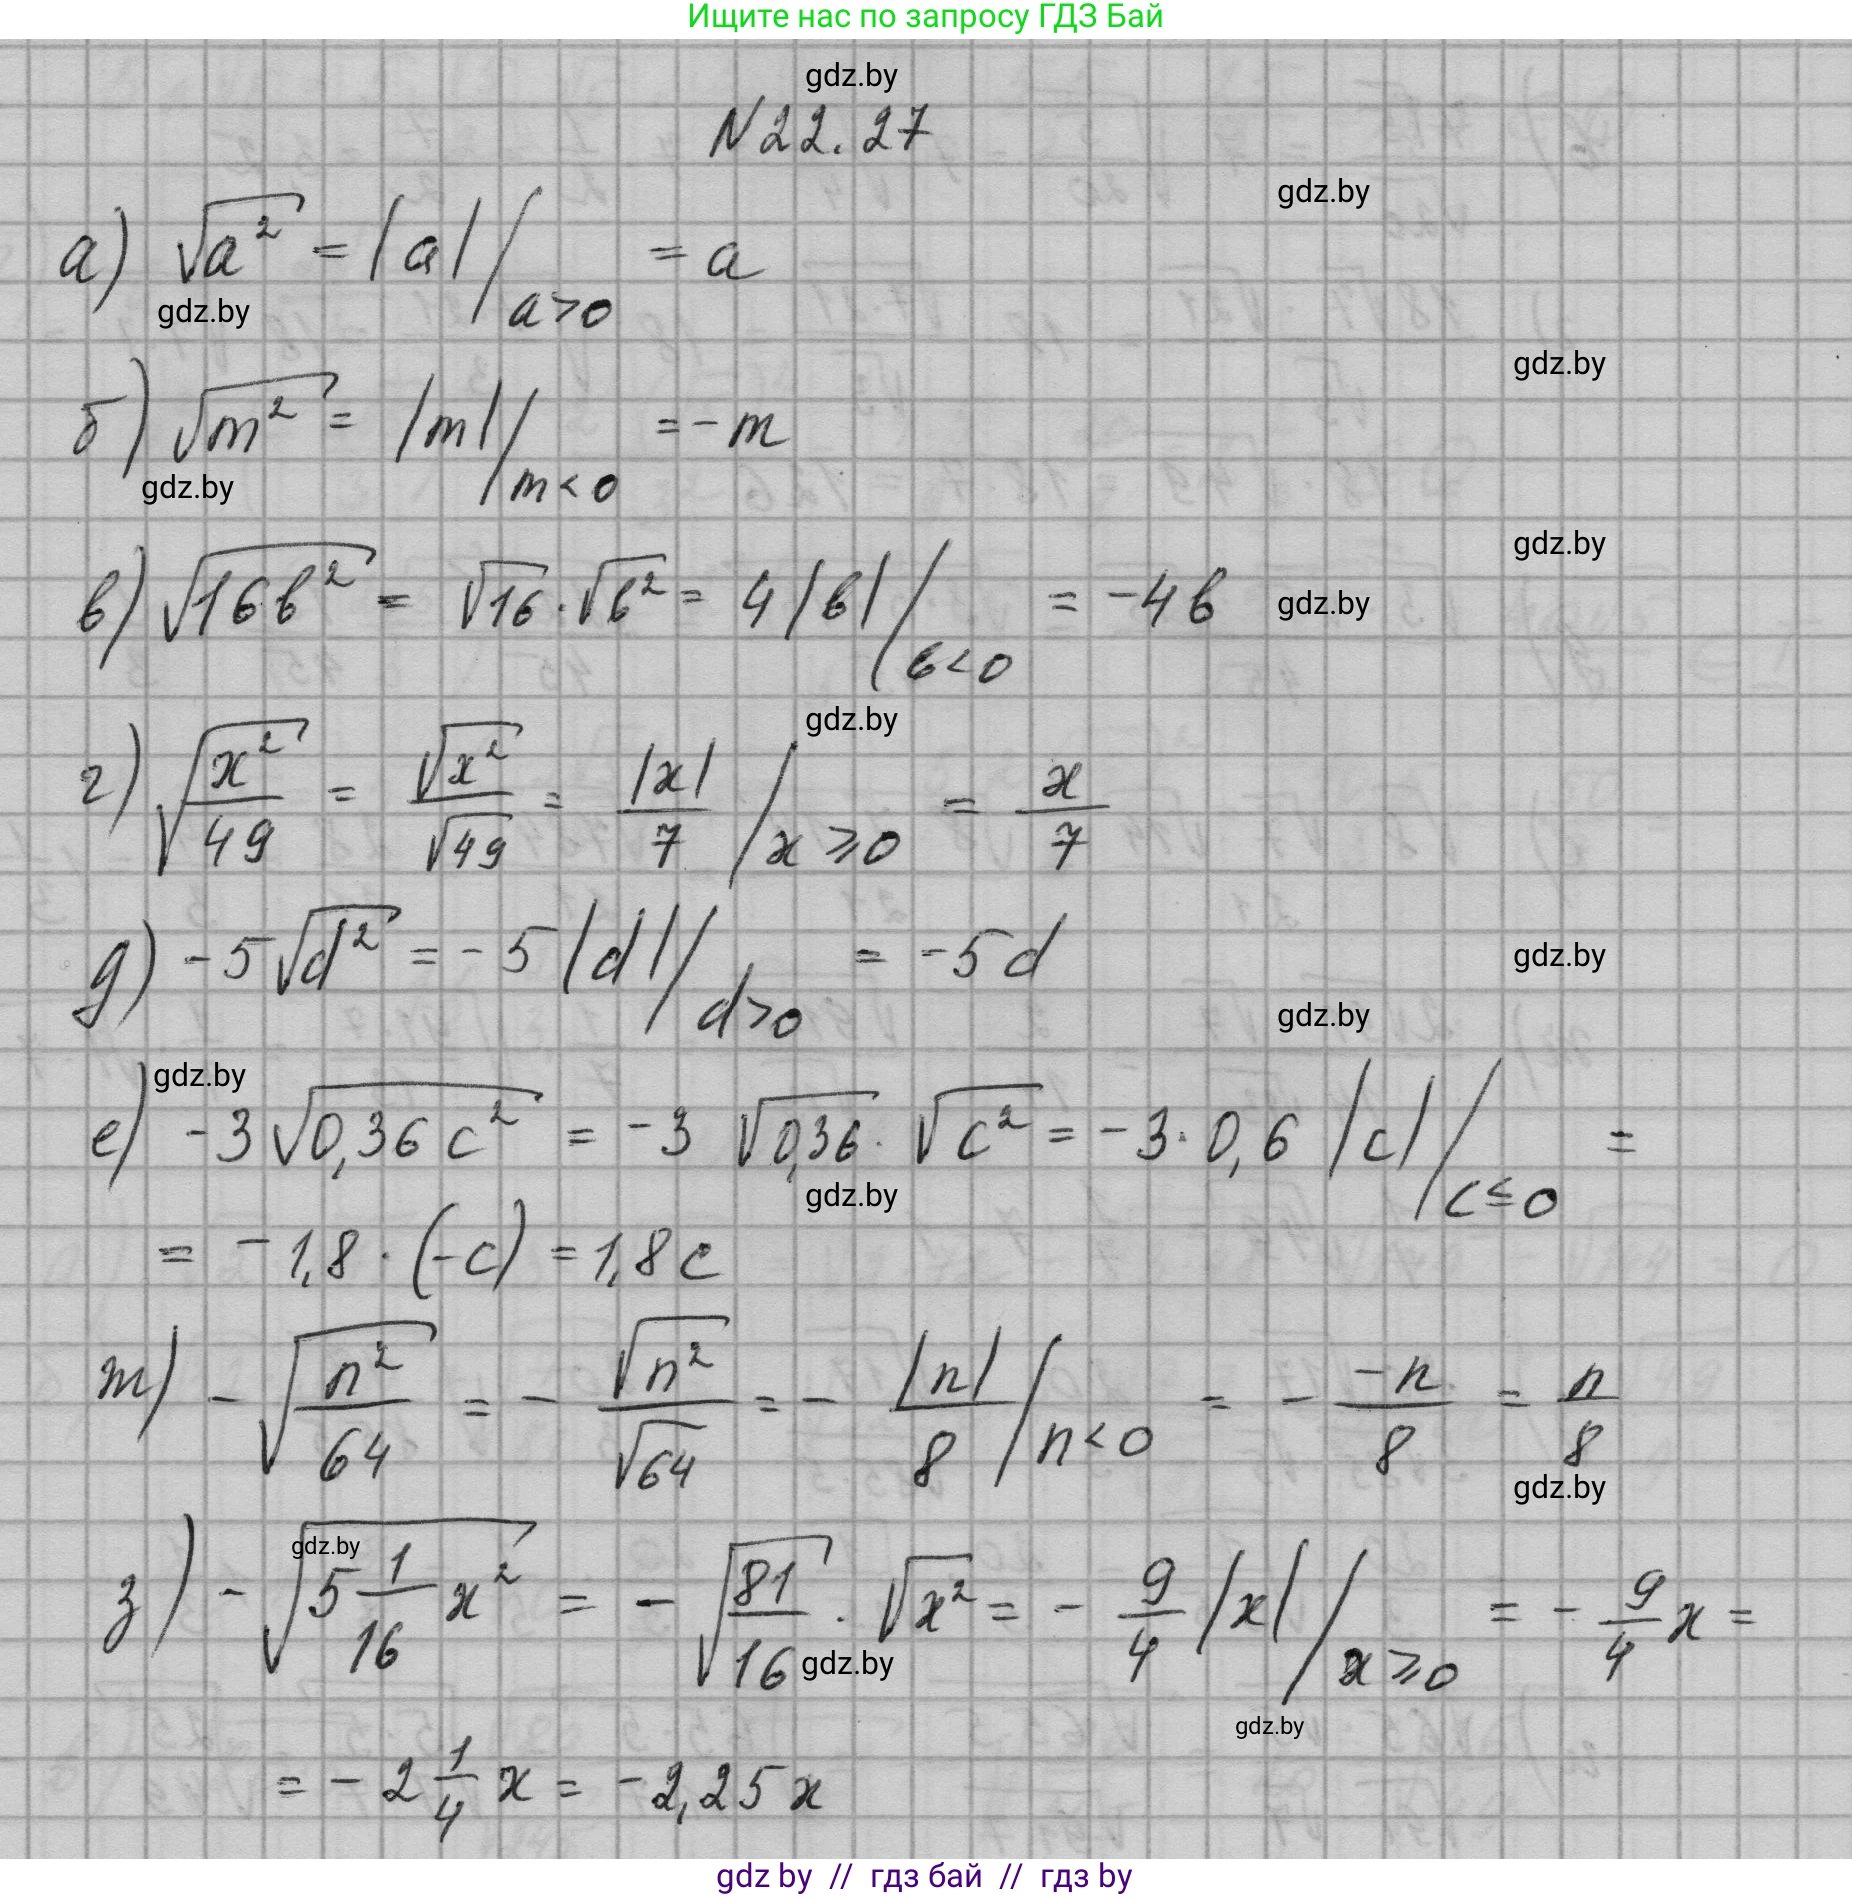 Ищите нас по запросу ГДЗ Бай
gdz.by
N 22.27
gdz.by
а) √a² = |a| / a>0 = a
gdz.by
gdz.by
б) √m² = |m| / m<0 = -m
gdz.by
gdz.by
в) √16b² = √16 · √b² = 4|b| / b<0 = -4b
gdz.by
gdz.by
г) √(x²/49) = √x²/√49 = |x|/7 / x⩾0 = x/7
д) -5√d² = -5|d| / d>0 = -5d
gdz.by
gdz.by
gdz.by
е) -3√0,36c² = -3 √0,36 · √c² = -3 · 0,6 |c| / c≤0 =
gdz.by
= -1,8 · (-c) = 1,8c
ж) -√(n²/64) = - √n²/√64 = - |n|/8 / n<0 = - -n/8 = n/8
gdz.by
gdz.by
з) -√(5 1/16 x²) = -√(81/16) · √x² = - 9/4 |x| / x⩾0 = - 9/4 x =
gdz.by
gdz.by
= -2 1/4 x = -2,25x
gdz by // гдз бай // гдз by